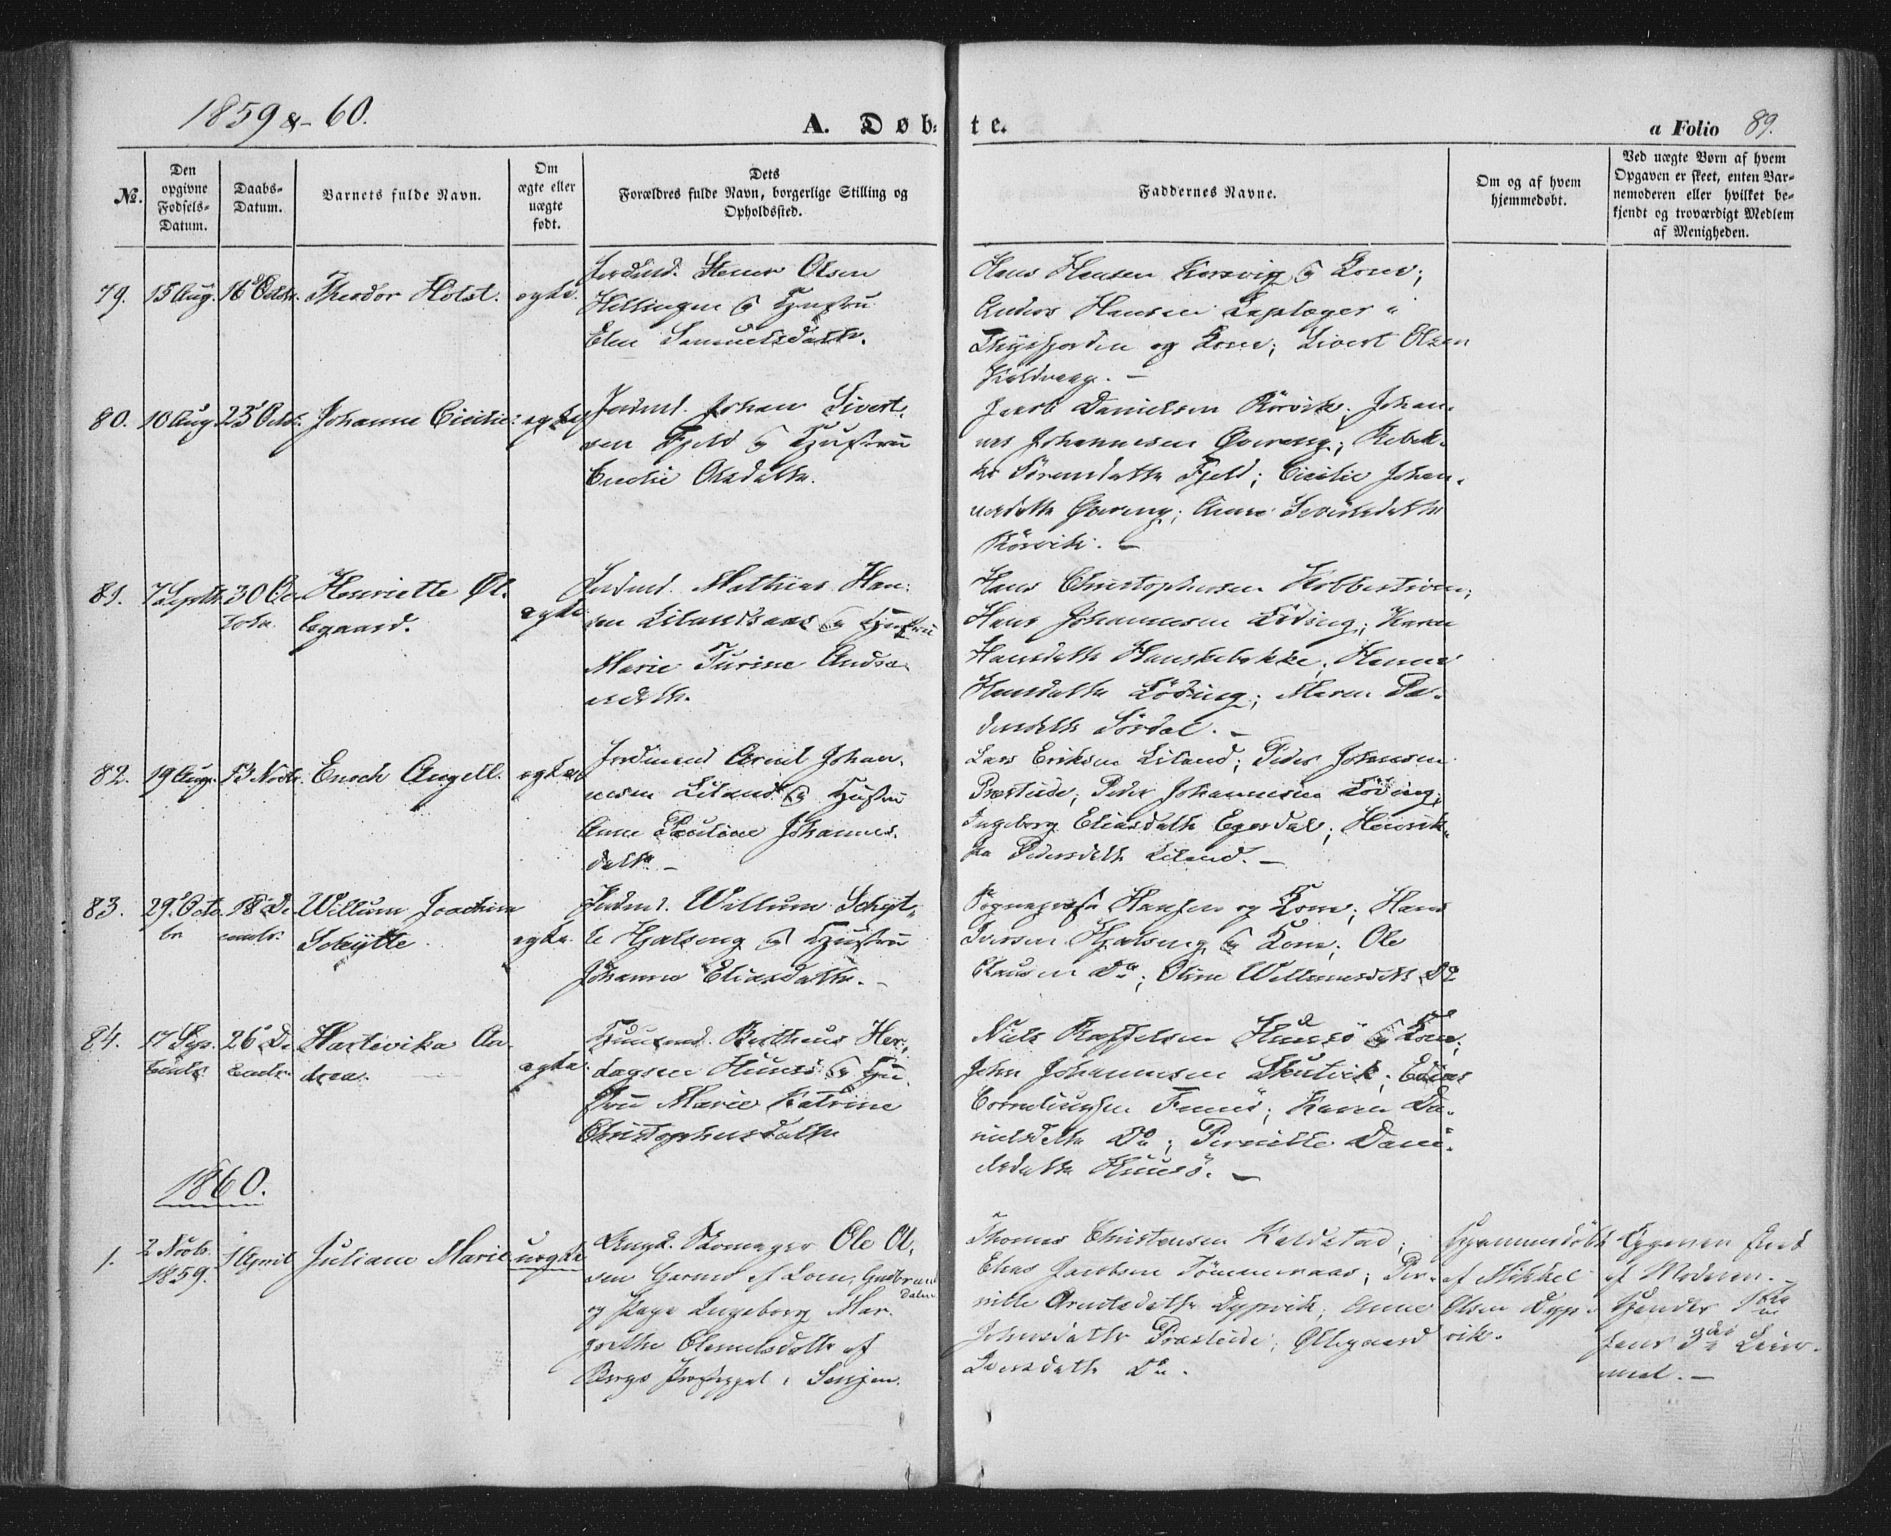 1859 & 60.
A. Døbte.
a Folio 89.
No.
Den opgivne Fødsels-Datum.
Daabs-Datum.
Barnets fulde Navn.
Om ægte eller uægte født.
Dets Forældres fulde Navn, borgerlige Stilling og Opholdssted.
Faddernes Navne.
Om og af hvem hjemmedøbt.
Ved uægte Børn af hvem Opgaven er skeet, enten Barnemoderen eller hvilket bekjendt og troværdigt Medlem af Menigheden.
79. 15 Aug. 16 Octbr. Theodor Holst. ægte.
Stener Olsen
Hillingen og Hustru
Elen Samuelsdatter.
Hans Hansen Korsvig og Kone;
Anders Hansen Leplæger i
Thysfjorden og Kone; Sivert Olsen
80. 10 Aug 23 Octbr. Johanne Cicilie ægte
Jordmd. Johan Sivert-
sen Fjeld og Hustru
Cecilie Olsdattr.
Jacob Danielsen Rörvik; Johan-
nes Johannesen Øvereng; Rebek-
ka Sörensdattr Fjeld; Cicilie Johan-
nesdattr Øvereng; Anne Sivertsdattr
Rörvik. -
81. 7 Septbr 30 Oc-
tobr. Henriette Ol-
legaard. ægte
Jordmd. Mathias Han-
sen Lilandsaas og Hustru
Marie Turine Andre-
asdattr.
Hans Christophersen Kobberström;
Hans Johannesen Löding; Karen
Hansdattr Hanskebakke; Hanna
Hansdattr Löding; Maren Pe-
dersdattr Sördal. -
82. 19 Aug. 13 Novbr. Enoch Angell. ægte
Jordmand Arnt Johan-
nesen Liland og Hustru
Anne Pauline Johannes-
dattr. -
Lars Eriksen Liland; Peder Johnsen
Præsteide; Peder Johannesen Löding;
Ingeborg Eliasdattr Egesdal; Henrik-
ka Pedersdattr Liland. -
83. 29 Octo-
br 18 De-
cembr. Willum Joachim
Schytte. ægte.
Jordmd. Willum Schyt-
te Hjalseng og Hustru
Johanna Eliasdattr. -
Hansen og Kone; Hans
Iversen Hjalseng og Kone; Ole
Clausen Do; Oline Willumsdattr Do
84. 17 Sep-
tembr. 26 De-
cembr. Hartvika An-
drea. ægte.
Huusmd. Bertheus Her-
lagsen Hunsö og Hu-
stru Marie Katrine
Christophersdattr
Niels Rafaelsen Hunsö og Kone;
John Johannesen Skutvik; Elias
Corneliussen Finnö; Karen Da-
nielsdattr Do; Pernille Dani-
elsdattr Hunsö. -
1860.
1. 2 Novbr.
1859. 1 April Juliane Marie uægte
Ungk. Skomager Ole Ol-
sen Garmo af Lom, Gudbrands-
dalen
og Pige Ingeborg Mar-
grethe Clemetsdattr af
Bergs Præstegjel i Senjen.
Thomas Christensen Kaldstad;
Elias Jacobsen Tömmeraas; Per-
nille Arntsdattr Dypvik; Anne
Johnsdattr Præsteide; Ollegaard
Iversdattr Do.
Hjemmedöbt
af Mikkel
Olsen Dyp-
vik.
Opgaven skeet
af Moderen. -
Hendes 1ste
hans 3die Leier-
maal. -